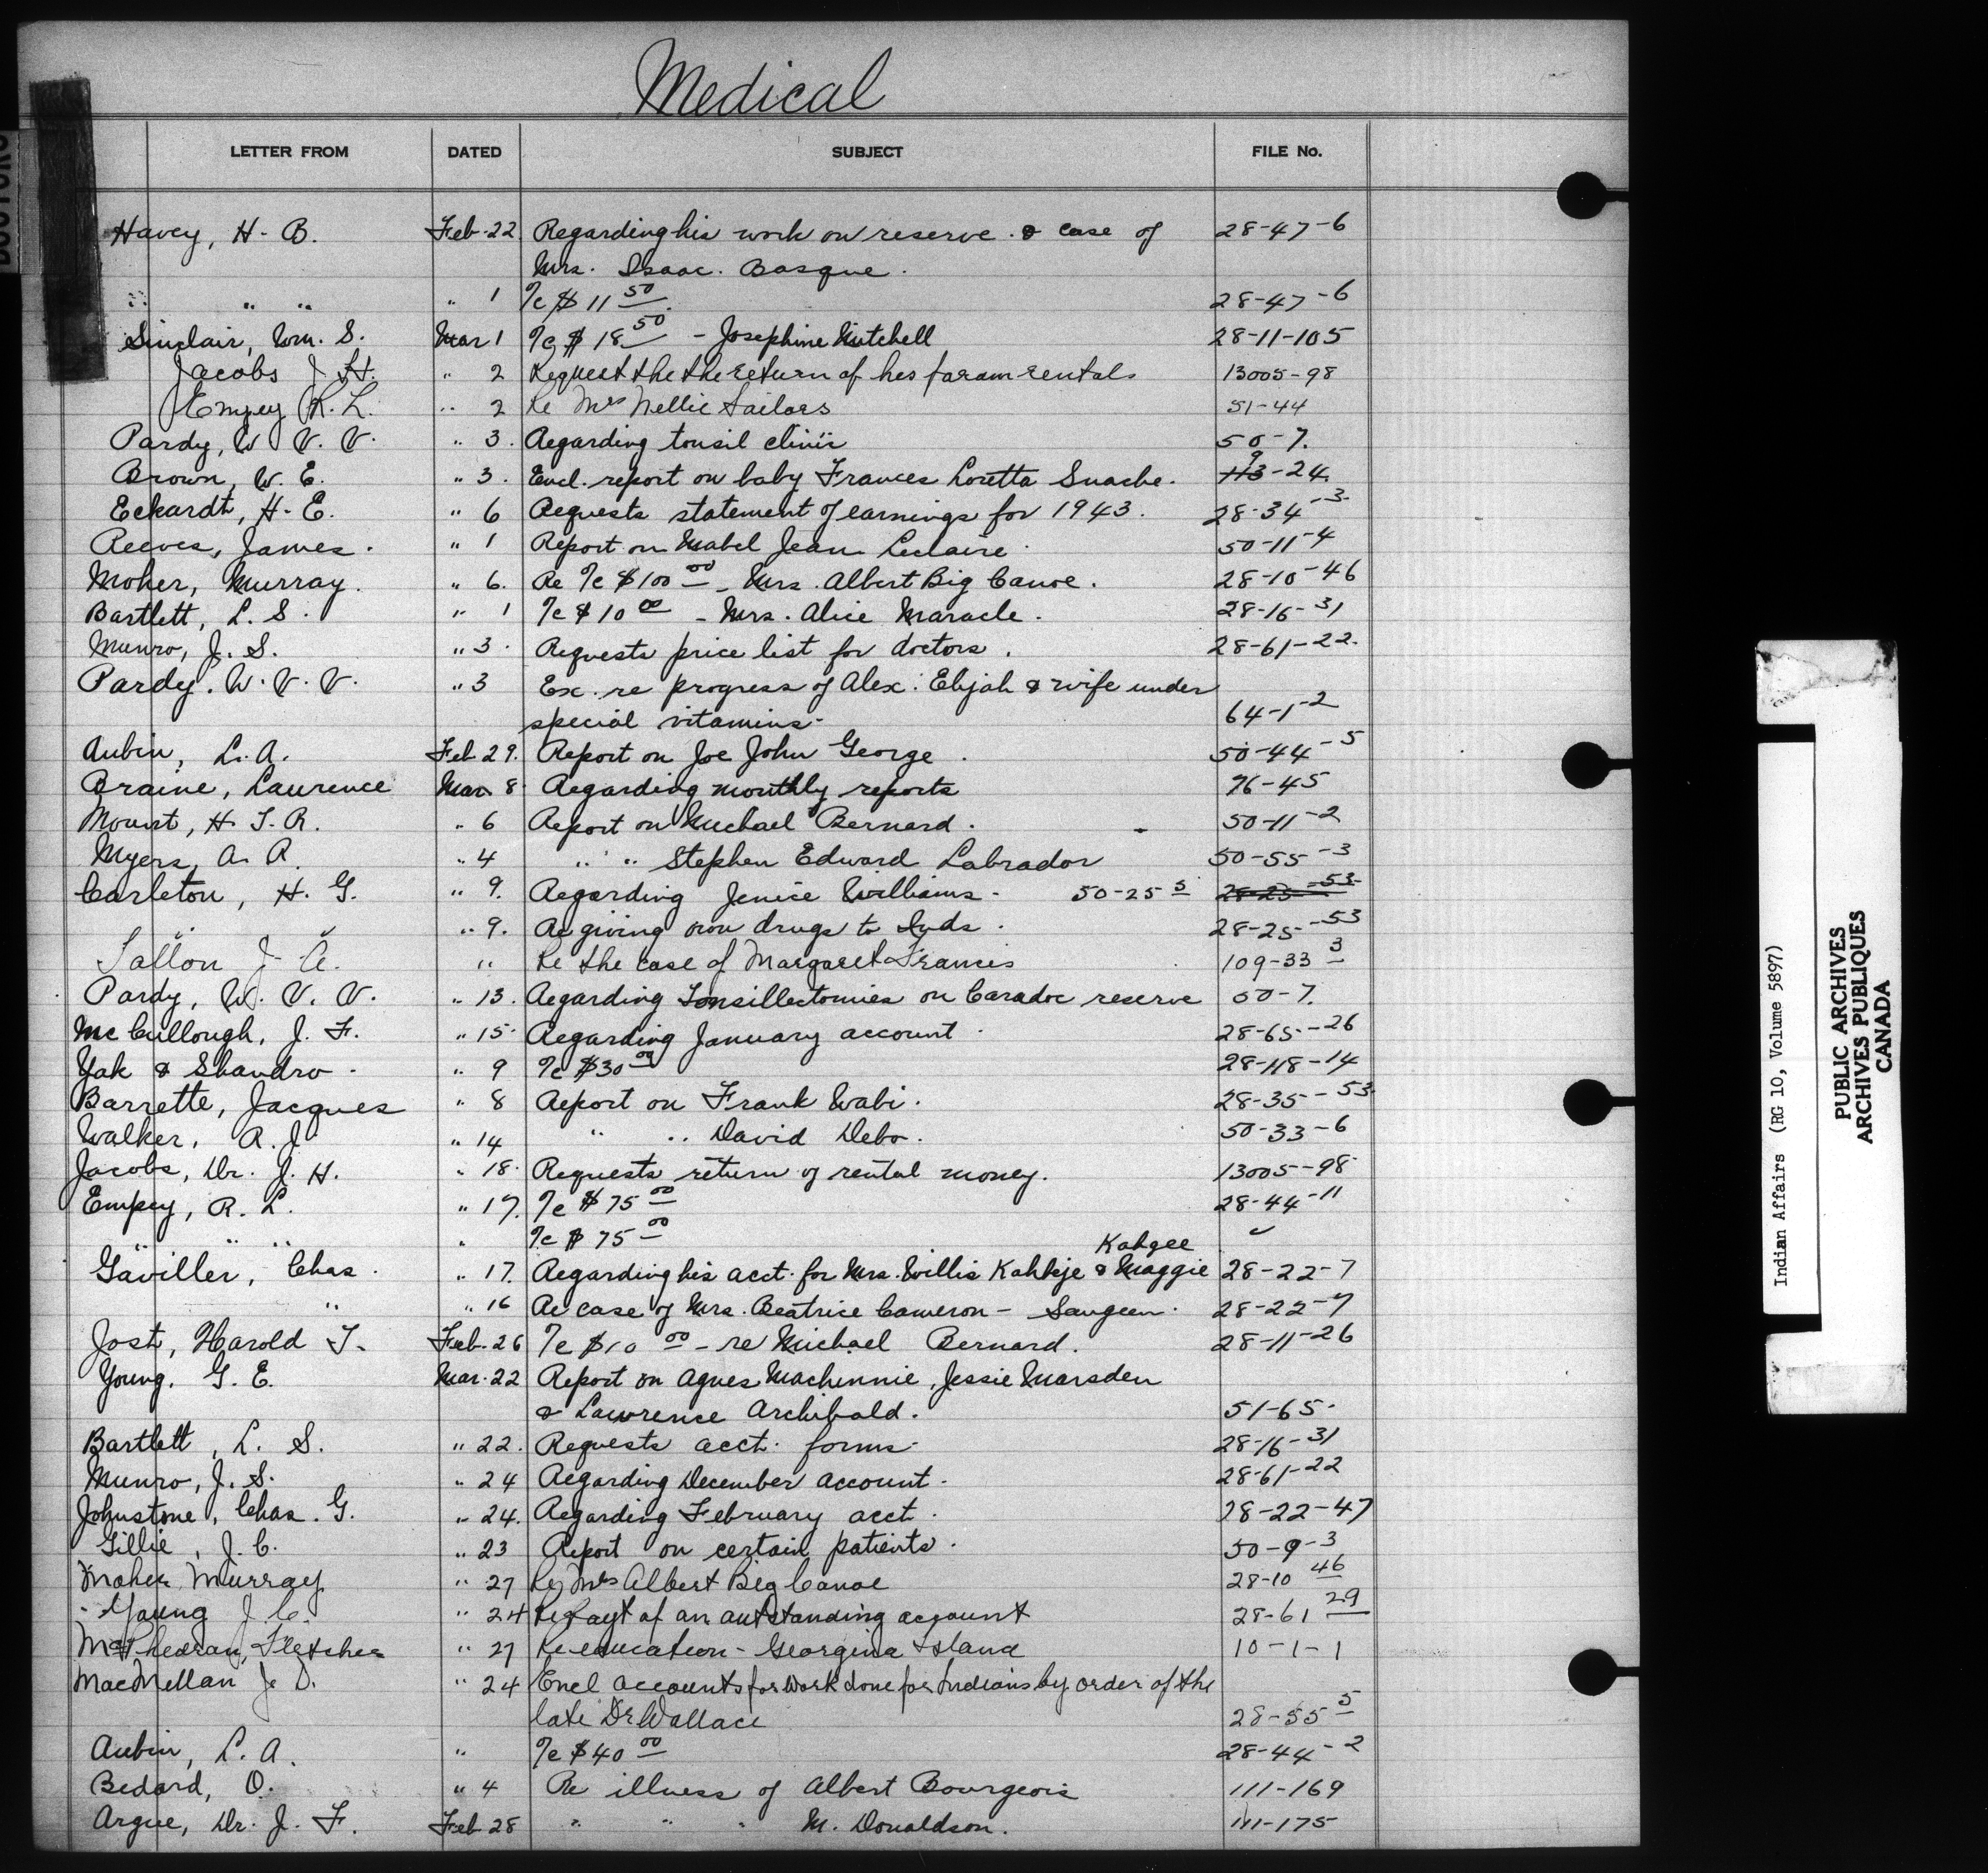 Medical
LETTER FROM DATED SUBJECT FILE No.
Havey, H. B. Feb. 22. Regarding his work on reserve & case of 28-47-6
Mrs. Isaac Basque.
" " " " 1 7c $11 50 28-47-6
Sinclair, Wm. S. Mar 1 7c $18 50 - Josephine Mitchell 28-11-105
Jacobs J. H. " 2 Request the the return of his faram rentals 13005-98
Empey R. L. " 2 Re Mrs Nellie Sailors 51-44
Pardy, W. V. V. " 3. Regarding tonsil clinic 50-7.
Brown, W. E. " 3. Encl. report on baby Frances Loretta Snache. 113 9-24.
Eckardt, H. E. " 6 Requests statement of earnings for 1943. 28-34-3
Reeves, James. " 1 Report on Mabel Jean Leclaire 50-11-4
Moher, Murray. " 6. Re 7c $100 00 - Mrs. Albert Big Canoe. 28-10-46
Bartlett, L. S. " 1 7c $10 00 - Mrs. Alice Maracle. 28-16-31
Munro, J. S. " 3. Requests price list for doctors. 28-61-22.
Pardy. W. V. V. " 3 Ex. re progress of Alex. Elijah & wife under
special vitamins- 64-1-2
Aubin, L. A. Feb 29. Report on Joe John George. 50-44-5
Braine, Laurence Mar. 8. Regarding monthly reports 76-45
Mount, H. T. R. " 6 Report on Michael Bernard. 50-11-2
Myers, A. R. " 4 " " Stephen Edward Labrador 50-55-3
Carleton, H. G. " 9. Regarding Jenice Williams - 50-25 5 28-25-53
" " " 9. Re giving own drugs to Inds. 28-25-53
Tallon J. A. " Re the case of Margaret Francis 109-33 3
Pardy, W. V. V. " 13. Regarding Tonsillectomies on Caradoc reserve 50-7.
McCullough, J. F. " 15. Regarding January account. 28-65-26
Yak & Shandro. " 9 7c $30 00 28-118-14
Barrette, Jacques " 8 Report on Frank Wabi. 28-35-53
Walker, R. J. " 14 " " David Debo. 50-33-6
Jacobs, Dr. J. H. " 18. Requests return of rental money. 13005-98
Empey, R. L. " 17. 7c $75 00 28-44-11
" " " " 7c $75 00 ✓
Kahgee
Gaviller, Chas. " 17. Regarding his acct. for Mrs. Willis Kahkje & Maggie 28-22-7
" " 16 Re case of Mrs. Beatrice Cameron - Saugeen. 28-22-7
Jost, Harold T. Feb. 26 7c $10 00 - re Michael Bernard. 28-11-26
Young, G. E. Mar. 22 Report on Agnes Machinnie, Jessie Marsden
& Lawrence Archibald. 51-65.
Bartlett, L. S. " 22. Requests acct. forms. 28-16-31
Munro, J. S. " 24 Regarding December account. 28-61-22
Johnstone, Chas. G. " 24. Regarding February acct. 28-22-47
Gillie, J. C. " 23 Report on certain patients. 50-9-3
Moher Murray " 27 Re Mrs Albert Big Canoe 28-10 46
Young J. C. " 24 Re payt of an outstanding account 28-61 29
McPhedran, Fletcher " 27 Re education - Georgina Island 10-1-1
MacMellan J. D. " 24 Encl accounts for work done for Indians by order of the
late Dr Wallace 28-55 5
Aubin, L. A. " 7c $40 00 28-44-2
Bedard, O. " 4 Re illness of Albert Bourgeois 111-169
Argue, Dr. J. F. Feb 28 " " " M. Donaldson. 111-175
Indian Affairs (RG 10, Volume 5897)
PUBLIC ARCHIVES
ARCHIVES PUBLIQUES
CANADA